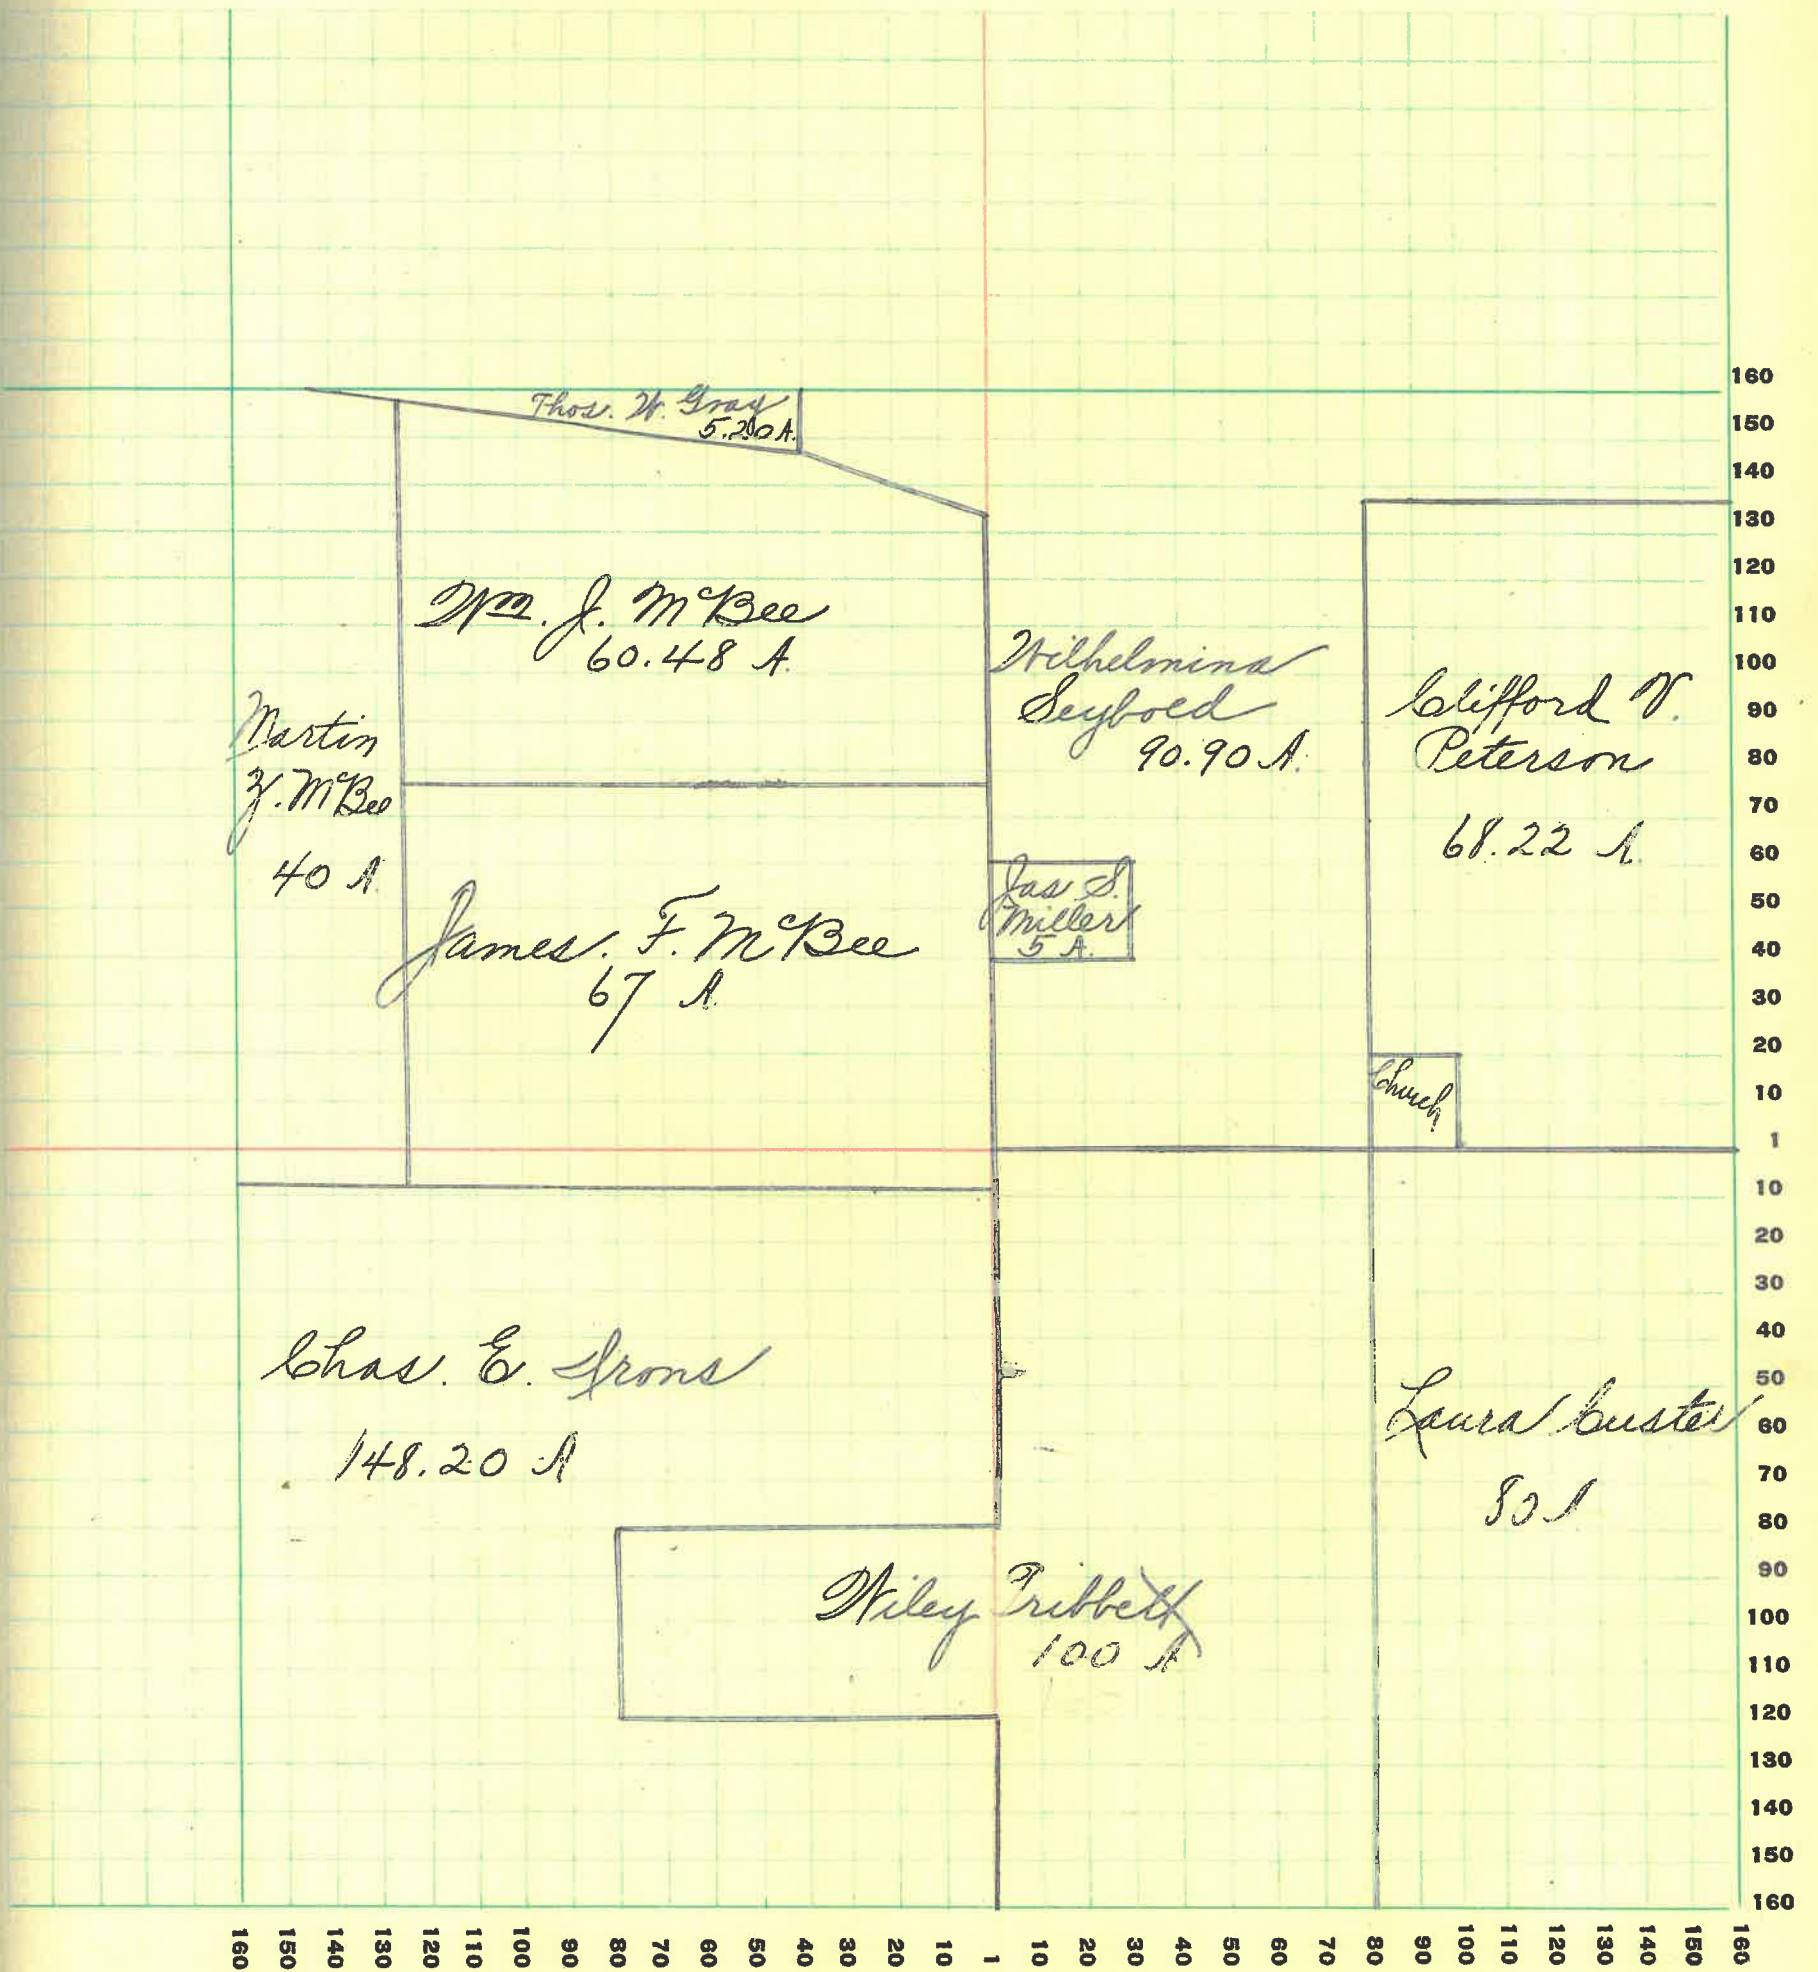 Thos. W. Gray
5.20 A.
Wm. J. McBee
60.48 A.
Martin
Z. McBee
40 A.
James. F. McBee
67 A.
Wilhelmina
Seyboed
90.90 A.
Jas S.
Miller
5 A.
Clifford V.
Peterson
68.22 A.
Church
Chas. E. Irons
148.20 A
Wiley Tribbett
100 A
Laura Custer
80 A
160
150
140
130
120
110
100
90
80
70
60
50
40
30
20
10
1
10
20
30
40
50
60
70
80
90
100
110
120
130
140
150
160
160 150 140 130 120 110 100 90 80 70 60 50 40 30 20 10 1 10 20 30 40 50 60 70 80 90 100 110 120 130 140 150 160